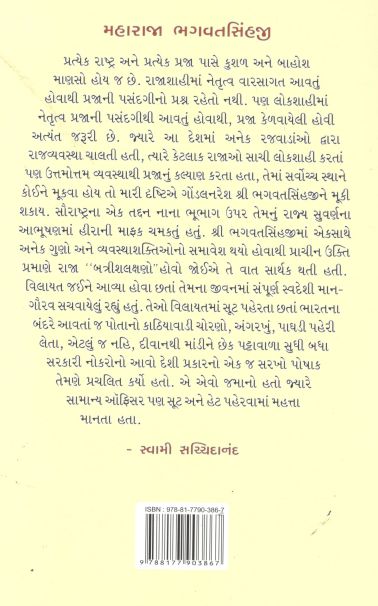 મહારાજા ભગવતસિંહજી
પ્રત્યેક રાષ્ટ્ર અને પ્રત્યેક પ્રજા પાસે કુશળ અને બાહોશ
માણસો હોય જ છે. રાજાશાહીમાં નેતૃત્વ વારસાગત આવતું
હોવાથી પ્રજાની પસંદગીનો પ્રશ્ન રહેતો નથી. પણ લોકશાહીમાં
નેતૃત્વ પ્રજાની પસંદગીથી આવતું હોવાથી, પ્રજા કેળવાયેલી હોવી
અત્યંત જરૂરી છે. જ્યારે આ દેશમાં અનેક રજવાડાંઓ દ્વારા
રાજવ્યવસ્થા ચાલતી હતી, ત્યારે કેટલાક રાજાઓ સાચી લોકશાહી કરતાં
પણ ઉત્તમોત્તમ વ્યવસ્થાથી પ્રજાનું કલ્યાણ કરતા હતા, તેમાં સર્વોચ્ચ સ્થાને
કોઈને મૂકવા હોય તો મારી દૃષ્ટિએ ગોંડલનરેશ શ્રી ભગવતસિંહજીને મૂકી
શકાય. સૌરાષ્ટ્રના એક તદ્દન નાના ભૂભાગ ઉપર તેમનું રાજ્ય સુવર્ણના
આભૂષણમાં હીરાની માફક ચમકતું હતું. શ્રી ભગવતસિંહજીમાં એકસાથે
અનેક ગુણો અને વ્યવસ્થાશક્તિઓનો સમાવેશ થયો હોવાથી પ્રાચીન ઉક્તિ
પ્રમાણે રાજા “બત્રીશલક્ષણો”હોવો જોઈએ તે વાત સાર્થક થતી હતી.
વિલાયત જઈને આવ્યા હોવા છતાં તેમના જીવનમાં સંપૂર્ણ સ્વદેશી માન-
ગૌરવ સચવાયેલું રહ્યું હતું. તેઓ વિલાયતમાં સૂટ પહેરતા છતાં ભારતના
બંદરે આવતાં જ પોતાનો કાઠિયાવાડી ચોરણો, અંગરખું, પાઘડી પહેરી
લેતા, એટલું જ નહિ, દીવાનથી માંડીને છેક પટ્ટાવાળા સુધી બધા
સરકારી નોકરોનો આવો દેશી પ્રકારનો એક જ સરખો પોષાક
તેમણે પ્રચલિત કર્યો હતો. એ એવો જમાનો હતો જ્યારે
સામાન્ય ઑફિસર પણ સૂટ અને હેટ પહેરવામાં મહત્તા
માનતા હતા.
- સ્વામી સચ્ચિદાનંદ
ISBN : 978-81-7790-386-7
9 788177 903867